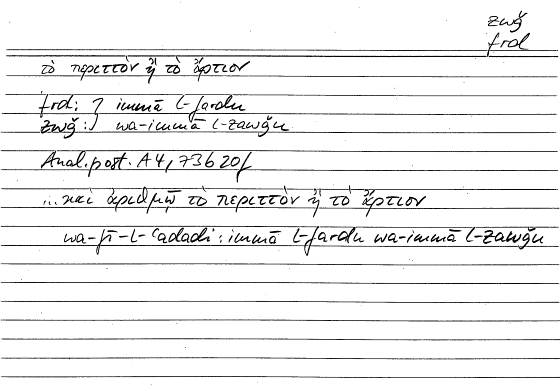 zwǧ
frd
τὸ περιττὸν ἢ τὸ ἄρτιον
frd: } immā l-fardu
zwǧ: } wa-immā l-zawǧu
Anal. post. A4, 73b20f
...καὶ ἀριθμῷ τὸ περιττὸν ἢ τὸ ἄρτιον
wa-fī-l-ʿadadi: immā l-fardu wa-immā l-zawǧu